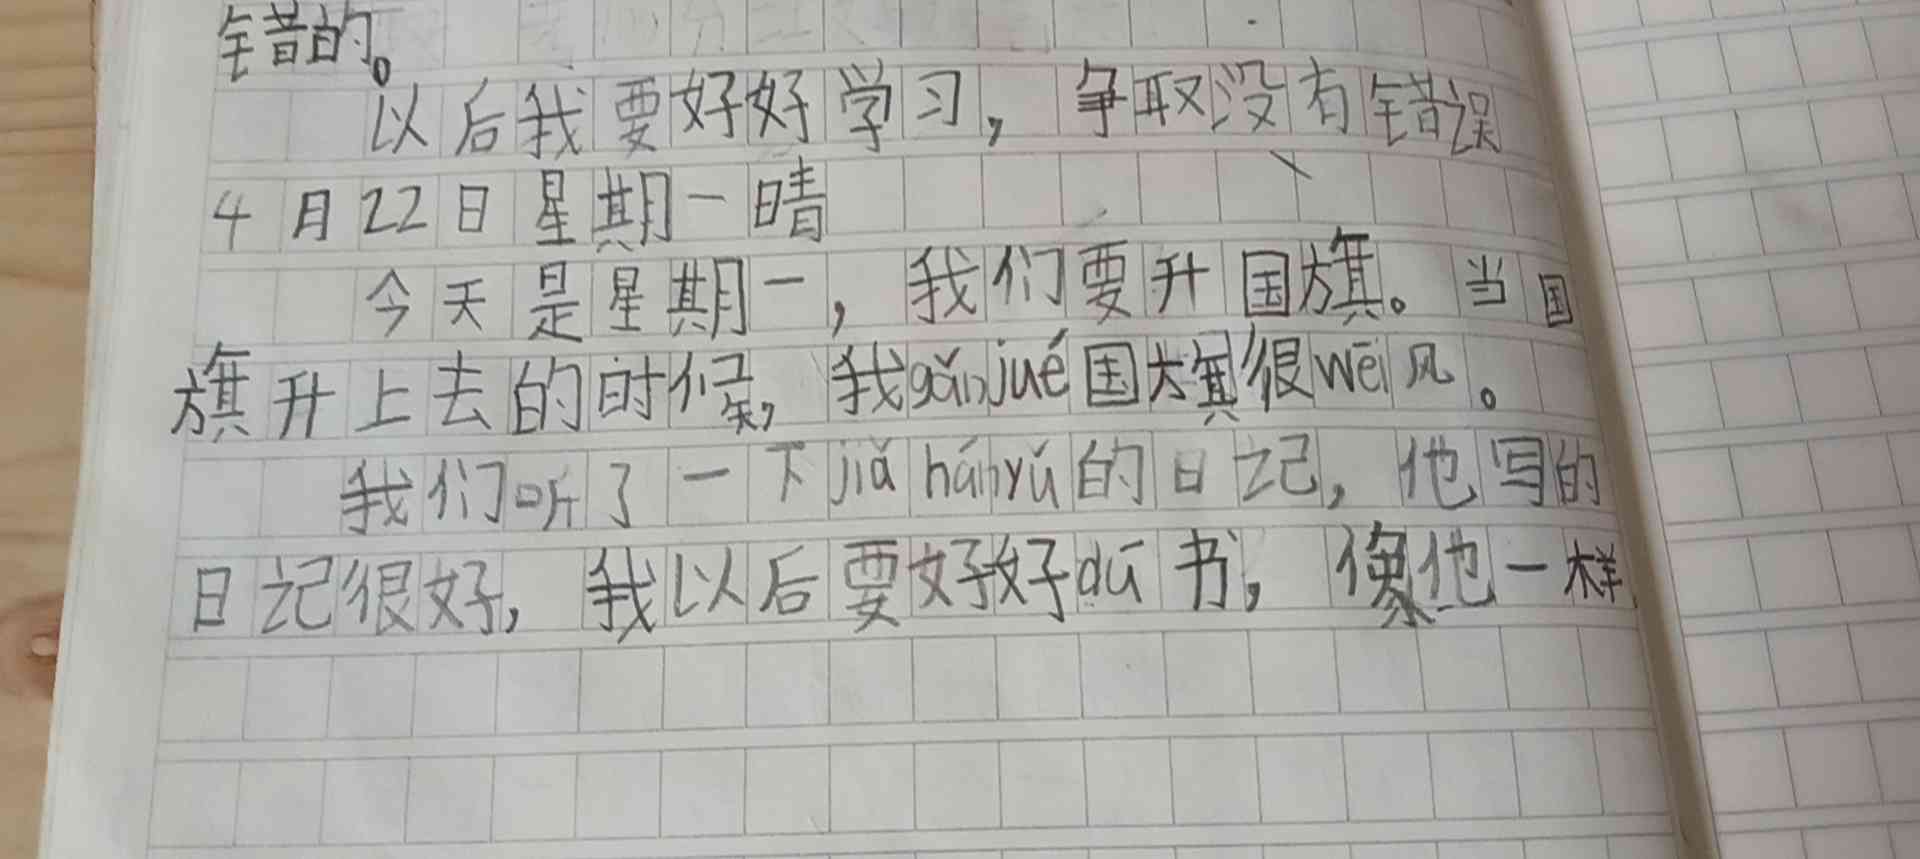 错的。
以后我要好好学习，争取没有错误
4月22日星期一晴
今天是星期一，我们要升国旗。当国
旗升上去的时候，我gǎnjué国旗很wēi风。
我们听了一下jiǎ hányǔ的日记，他写的
日记很好，我以后要好好dú书，像他一样